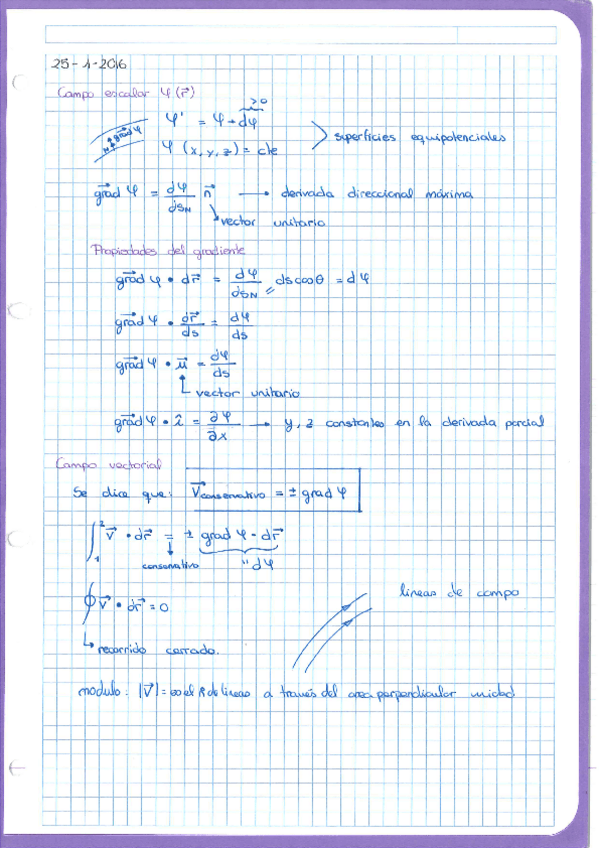 25-1-2016
Campo escalar φ(r⃗)
>0
φ' = φ + dφ
grad φ
φ(x, y, z) = cte
superficies equipotenciales
grad φ = dφ/ds_N n⃗ → derivada direccional máxima
vector unitario
Propiedades del gradiente
grad φ • dr⃗ = dφ/ds_N ds cos θ = dφ
grad φ • dr⃗/ds = dφ/ds
grad φ • u⃗ = dφ/ds
vector unitario
grad φ • î = ∂φ/∂x → y, z constantes en la derivada parcial
Campo vectorial
Se dice que: V⃗conservativo = ± grad φ
∫₁² v⃗ • dr⃗ = ± grad φ • dr⃗
conservativo " dφ
∮ v⃗ • dr⃗ = 0
líneas de campo
recorrido cerrado.
modulo: |V⃗| = es el de líneas a través del area perpendicular unidad